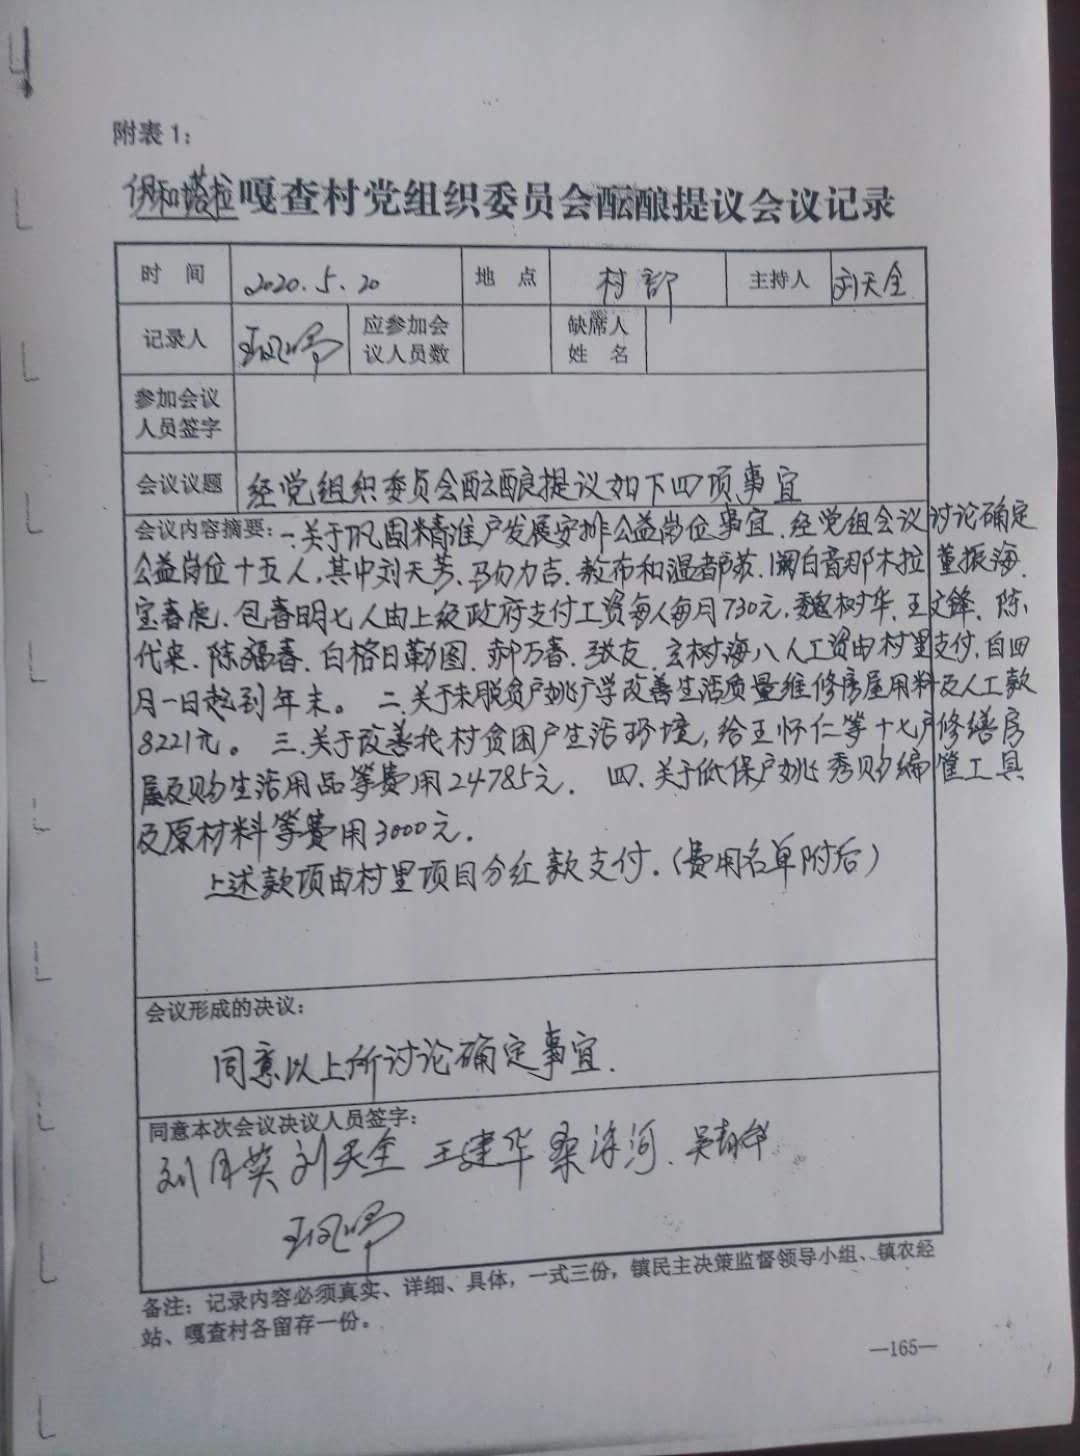 附表1：
伊和塔拉嘎查村党组织委员会酝酿提议会议记录
时 间 2020.5.20 地 点 村部 主持人 刘天全
记录人 应参加会议人员数 缺席人姓名
参加会议人员签字
会议议题 经党组织委员会酝酿提议如下四项事宜
会议内容摘要：一.关于巩固精准户发展安排公益岗位事宜.经党组会议讨论确定
公益岗位十五人,其中刘天芳.马勿力吉.敖布和温都苏.阑白音那木拉 董振海.
宝春虎.包春明七人由上级政府支付工资每人每月730元.魏树华.王文锋.陈
代来.陈福春.白格日勒图.郝万春.张友.玄树海八人工资由村里支付.自四
月一日起到年末。 二.关于未脱贫户姚广学改善生活质量维修房屋用料及人工款
8221元。 三.关于改善我村贫困户生活环境,给王怀仁等十七户修缮房
屋及购生活用品等费用24785元. 四.关于低保户姚秀购编筐工具
及原材料等费用3000元.
上述款项由村里项目分红款支付.(费用名单附后)
会议形成的决议：
同意以上所讨论确定事宜.
同意本次会议决议人员签字：
刘月英 刘天全 王建华
备注：记录内容必须真实、详细、具体，一式三份，镇民主决策监督领导小组、镇农经
站、嘎查村各留存一份。
—165—